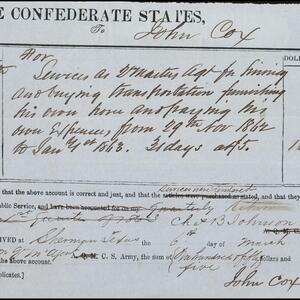 E CONFEDERATE STATES,
To John Cox
DOL
For
Services as Qr Master Agt for hiring
and buying transportation furnishing
his own horse and paying his
own Expenses from 29th Nov 1862
to Jany 1st 1863. 21 days at 5.
that the above account is correct and just, and that
Services were rendered
Public Service, and have been
Ch B Johnson
A. Q. M. C. S.
EIVED at Sherman Texas the 6 day of March
A. Q. M. C. S. Army, the sum of One hundred &
five dollars and
plicates.] John Cox